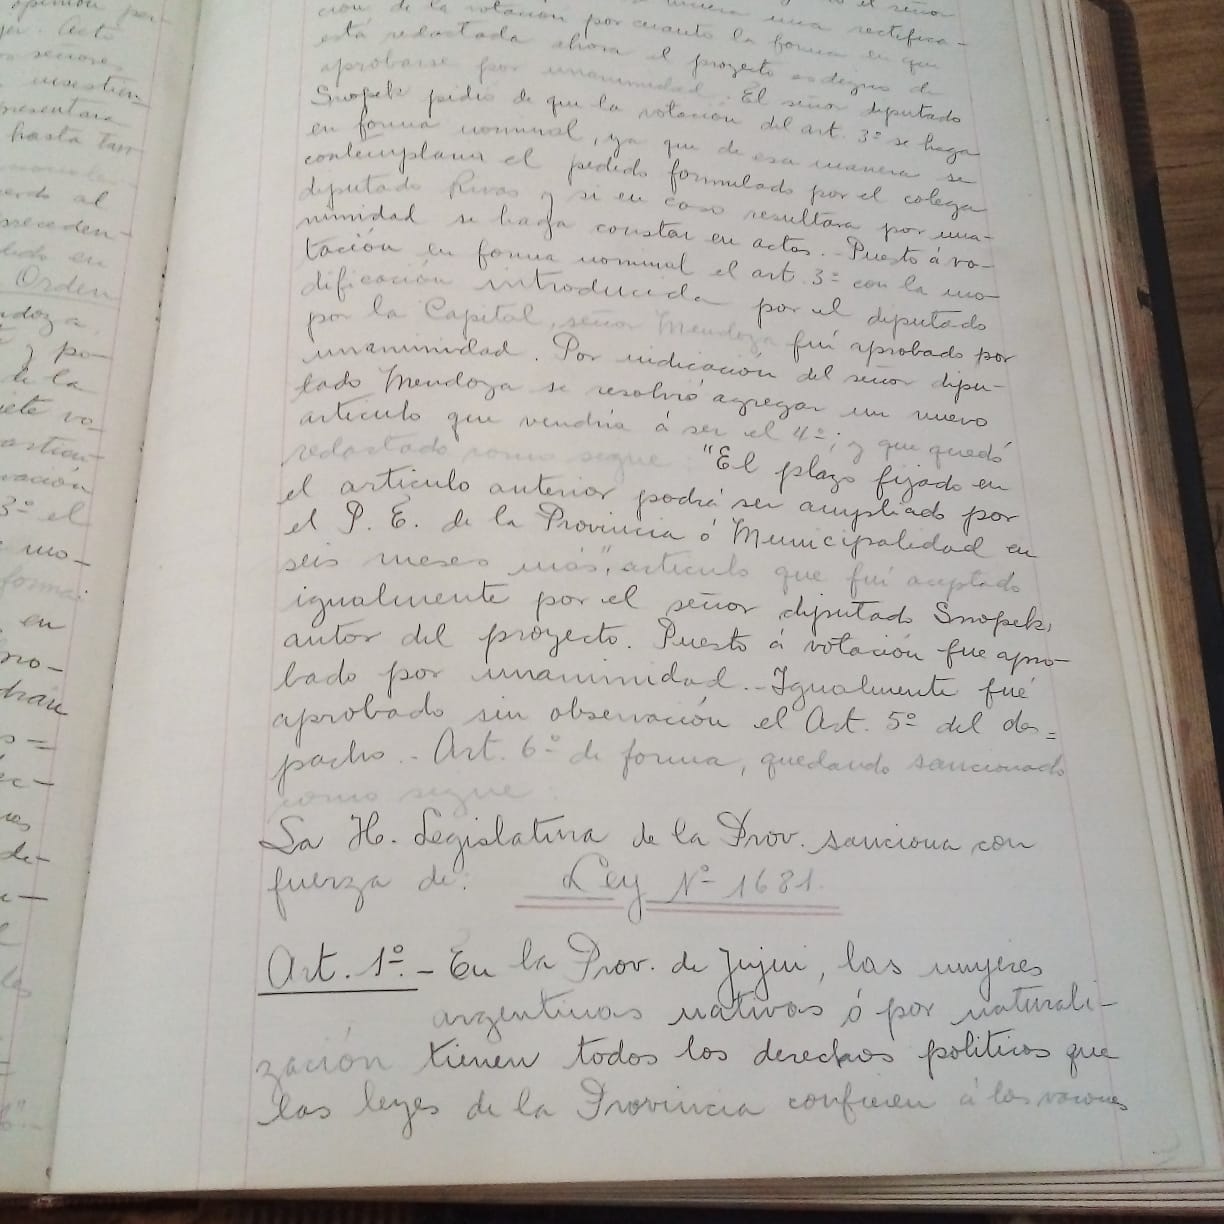 opinión
señores
insestien
hasta tan
al
preceden-
en
Orden
y po-
de la
vo-
vación
3º el
mo-
forma
en
hiera una rectifica-
ción de la votación por cuanto la forma en que
está redactada ahora el proyecto es digno de
aprobarse por unanimidad. El señor diputado
Snopek pidió de que la votación del art. 3º se haga
en forma nominal, ya que de esa manera se
contemplaría el pedido formulado por el colega
diputado Rivas y si en caso resultara por una-
nimidad se haga constar en actas. - Puesto á vo-
tación en forma nominal el art. 3º con la mo-
dificación introducida por el diputado
por la Capital, señor Mendoza fué aprobado por
unanimidad. Por indicación del señor dipu-
tado Mendoza se resolvió agregar un nuevo
artículo que vendría á ser el 4º; y que quedó
redactado como sigue: "El plazo fijado en
el artículo anterior podrá ser ampliado por
el P. E. de la Provincia ó Municipalidad en
seis meses más", artículo que fué aceptado
igualmente por el señor diputado Snopek,
autor del proyecto. Puesto á votación fue apro-
bado por unanimidad. - Igualmente fué
aprobado sin observación el Art. 5º del des=
pacho. - Art. 6º de forma, quedando sancionado
como sigue:
La H. Legislatura de la Prov. sanciona con
fuerza de: Ley Nº 1681.
Art. 1º. - En la Prov. de Jujui, las mujeres
argentinas nativas ó por naturali-
zación tienen todos los derechos politicos que
las leyes de la Provincia confieren á los varones